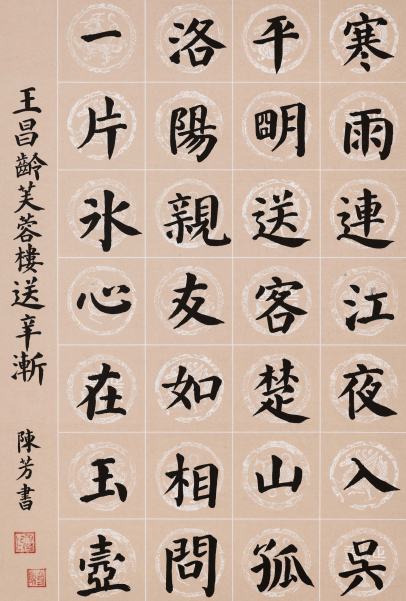 寒雨連江夜入吳
平明送客楚山孤
洛陽親友如相問
一片氷心在玉壺
王昌齡芙蓉樓送辛漸
陳芳書